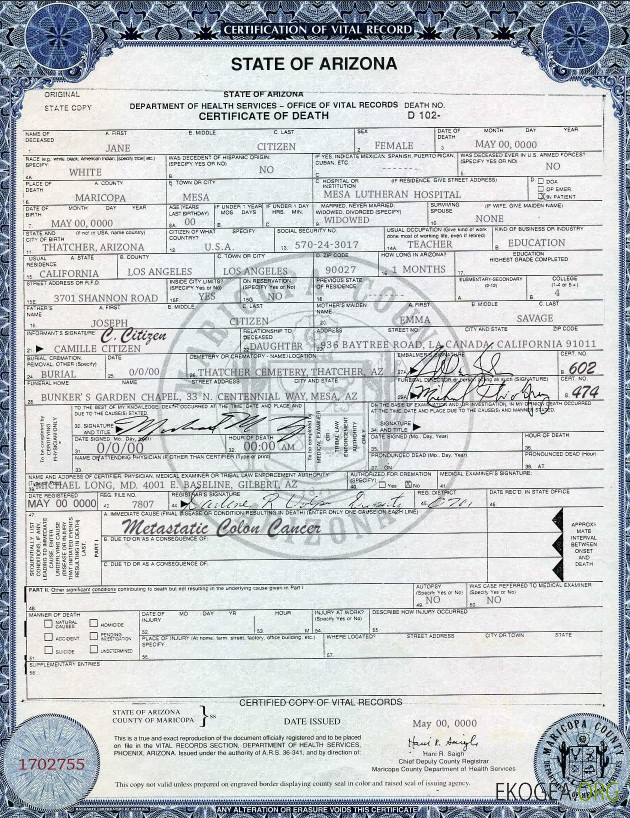 CERTIFICATION OF VITAL RECORD
STATE OF ARIZONA
ORIGINAL
STATE COPY
STATE OF ARIZONA
DEPARTMENT OF HEALTH SERVICES – OFFICE OF VITAL RECORDS
CERTIFICATE OF DEATH
DEATH NO.
D 102-
NAME OF DECEASED
A. FIRST B. MIDDLE C. LAST SEX DATE OF DEATH MONTH DAY YEAR
JANE CITIZEN FEMALE MAY 00, 0000
RACE (e.g. white, black, American Indian, (specify tribe) etc.) SPECIFY:
WAS DECEDENT OF HISPANIC ORIGIN: (SPECIFY YES OR NO)
IF YES, INDICATE MEXICAN, SPANISH, PUERTO RICAN, CUBAN, ETC.
WAS DECEASED EVER IN U.S. ARMED FORCES? (SPECIFY YES OR NO)
WHITE NO ------ NO
PLACE OF DEATH A. COUNTY B. TOWN OR CITY C. HOSPITAL OR INSTITUTION (IF RESIDENCE, GIVE STREET ADDRESS) D. DOA
OP EMER.
IN PATIENT
MARICOPA MESA MESA LUTHERAN HOSPITAL
DATE OF BIRTH MONTH DAY YEAR AGE (YEARS LAST BIRTHDAY) IF UNDER 1 YEAR MOS. DAYS IF UNDER 1 DAY HRS. MIN. MARRIED, NEVER MARRIED, WIDOWED, DIVORCED (SPECIFY) SURVIVING SPOUSE (IF WIFE, GIVE MAIDEN NAME)
MAY 00, 0000 00 WIDOWED NONE
STATE AND CITY OF BIRTH (if not in USA, name country) CITIZEN OF WHAT COUNTRY? SPECIFY SOCIAL SECURITY NO. USUAL OCCUPATION (Give kind of work done most of working life, even if retired) KIND OF BUSINESS OR INDUSTRY
THATCHER, ARIZONA U.S.A. 570-24-3017 TEACHER EDUCATION
USUAL RESIDENCE A. STATE B. COUNTY C. TOWN OR CITY D. ZIP CODE HOW LONG IN ARIZONA? EDUCATION HIGHEST GRADE COMPLETED
CALIFORNIA LOS ANGELES LOS ANGELES 90027 1 MONTHS
STREET ADDRESS OR R.F.D. INSIDE CITY LIMITS? (Specify Yes or No) ON RESERVATION (Specify Yes or No) PREVIOUS STATE OF RESIDENCE ELEMENTARY-SECONDARY (0-12) COLLEGE (1-4 or 5+)
3701 SHANNON ROAD YES NO 4
FATHER'S NAME A. FIRST B. MIDDLE C. LAST MOTHER'S MAIDEN NAME A. FIRST B. MIDDLE C. LAST
JOSEPH CITIZEN EMMA SAVAGE
INFORMANT'S SIGNATURE C. Citizen RELATIONSHIP TO DECEASED ADDRESS STREET NO. CITY AND STATE ZIP CODE
CAMILLE CITIZEN DAUGHTER 936 BAYTREE ROAD, LA CANADA, CALIFORNIA 91011
BURIAL, CREMATION, REMOVAL, OTHER (Specify) DATE CEMETERY OR CREMATORY - NAME/LOCATION EMBALMER'S SIGNATURE CERT. NO.
BURIAL 0/0/00 THATCHER CEMETERY, THATCHER, AZ 602
FUNERAL HOME NAME STREET ADDRESS CITY AND STATE FUNERAL DIRECTOR or person acting as such (SIGNATURE) CERT. NO.
BUNKER'S GARDEN CHAPEL, 33 N. CENTENNIAL WAY, MESA, AZ 474
TO THE BEST OF MY KNOWLEDGE, DEATH OCCURRED AT THE TIME, DATE AND PLACE AND DUE TO THE CAUSE(S) STATED.
ON THE BASIS OF EXAMINATION AND/OR INVESTIGATION, IN MY OPINION DEATH OCCURRED AT THE TIME, DATE AND PLACE DUE TO THE CAUSE(S) AND MANNER STATED.
SIGNATURE AND TITLE
SIGNATURE AND TITLE
DATE SIGNED (Mo. Day, Year) HOUR OF DEATH DATE SIGNED (Mo. Day, Year) HOUR OF DEATH
0/0/00 00:00 AM
NAME OF ATTENDING PHYSICIAN IF OTHER THAN CERTIFIER (Type or print) PRONOUNCED DEAD (Mo. Day, Year) PRONOUNCED DEAD (Hour)
ON AT
NAME AND ADDRESS OF CERTIFIER, PHYSICIAN, MEDICAL EXAMINER OR TRIBAL LAW ENFORCEMENT AUTHORITY AUTHORIZED FOR CREMATION (SPECIFY) Yes No MEDICAL EXAMINER'S SIGNATURE:
MICHAEL LONG, MD. 4001 E. BASELINE, GILBERT, AZ
DATE REGISTERED REG. FILE NO. REGISTRAR'S SIGNATURE REG. DISTRICT DATE REC'D. IN STATE OFFICE
MAY 00 0000 7807
A. IMMEDIATE CAUSE (FINAL DISEASE OR CONDITION RESULTING IN DEATH) (ENTER ONLY ONE CAUSE ON EACH LINE)
Metastatic Colon Cancer
B. DUE TO OR AS A CONSEQUENCE OF:
C. DUE TO OR AS A CONSEQUENCE OF:
PART I
APPROXI-
MATE
INTERVAL
BETWEEN
ONSET
AND
DEATH
PART II. Other significant conditions contributing to death but not resulting in the underlying cause given in Part I AUTOPSY (Specify Yes or No) WAS CASE REFERRED TO MEDICAL EXAMINER (Specify Yes or No)
NO NO
MANNER OF DEATH DATE OF INJURY MO DAY YR HOUR INJURY AT WORK? (Specify Yes or No) DESCRIBE HOW INJURY OCCURRED
NATURAL CAUSES HOMICIDE
ACCIDENT PENDING INVESTIGATION
SUICIDE UNDETERMINED
PLACE OF INJURY (At home, farm, street, factory, office building, etc.) Specify WHERE LOCATED? STREET ADDRESS CITY OR TOWN STATE
SUPPLEMENTARY ENTRIES
CERTIFIED COPY OF VITAL RECORDS
STATE OF ARIZONA
COUNTY OF MARICOPA } ss
DATE ISSUED May 00, 0000
This is a true and exact reproduction of the document officially registered and to be placed
on file in the VITAL RECORDS SECTION, DEPARTMENT OF HEALTH SERVICES,
PHOENIX, ARIZONA. Issued under the authority of A.R.S. 36-341, and by direction of:
Hani R. Saigh
Hani R. Saigh
Chief Deputy County Registrar
Maricopa County Department of Health Services
1702755
MARICOPA COUNTY
This copy not valid unless prepared on engraved border displaying county seal in color and raised seal of issuing agency.
EKOGEA.ORG
ANY ALTERATION OR ERASURE VOIDS THIS CERTIFICATE